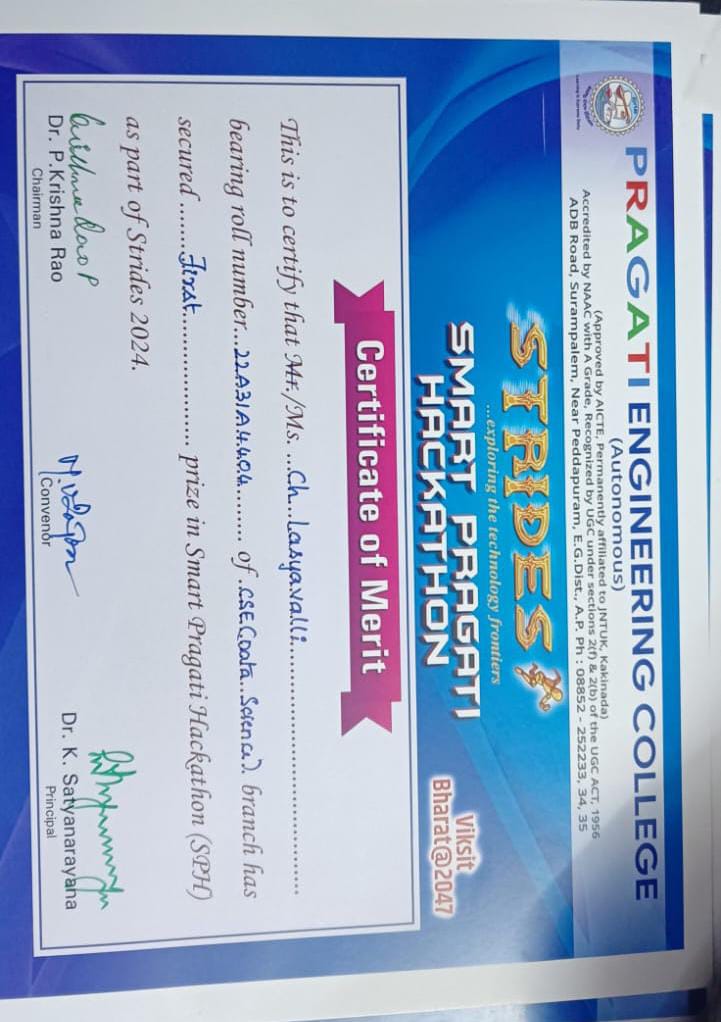 PRAGATI ENGINEERING COLLEGE
(Autonomous)
(Approved by AICTE, Permanently affiliated to JNTUK, Kakinada)
Accredited by NAAC with A Grade, Recognized by UGC under sections 2(f) & 2(b) of the UGC ACT, 1956
ADB Road, Surampalem, Near Peddapuram, E.G.Dist., A.P. Ph : 08852 - 252233, 34, 35
STRIDES
...exploring the technology frontiers
SMART PRAGATI
HACKATHON
Viksit
Bharat@2047
Certificate of Merit
This is to certify that Mr./Ms. ...Ch...Lasyavalli...
bearing roll number...22A31A4404......... of .CSE(Data..Science). branch has
secured .......First...................... prize in Smart Pragati Hackathon (SPH)
as part of Strides 2024.
Dr. P.Krishna Rao
Chairman
Convenor
Dr. K. Satyanarayana
Principal